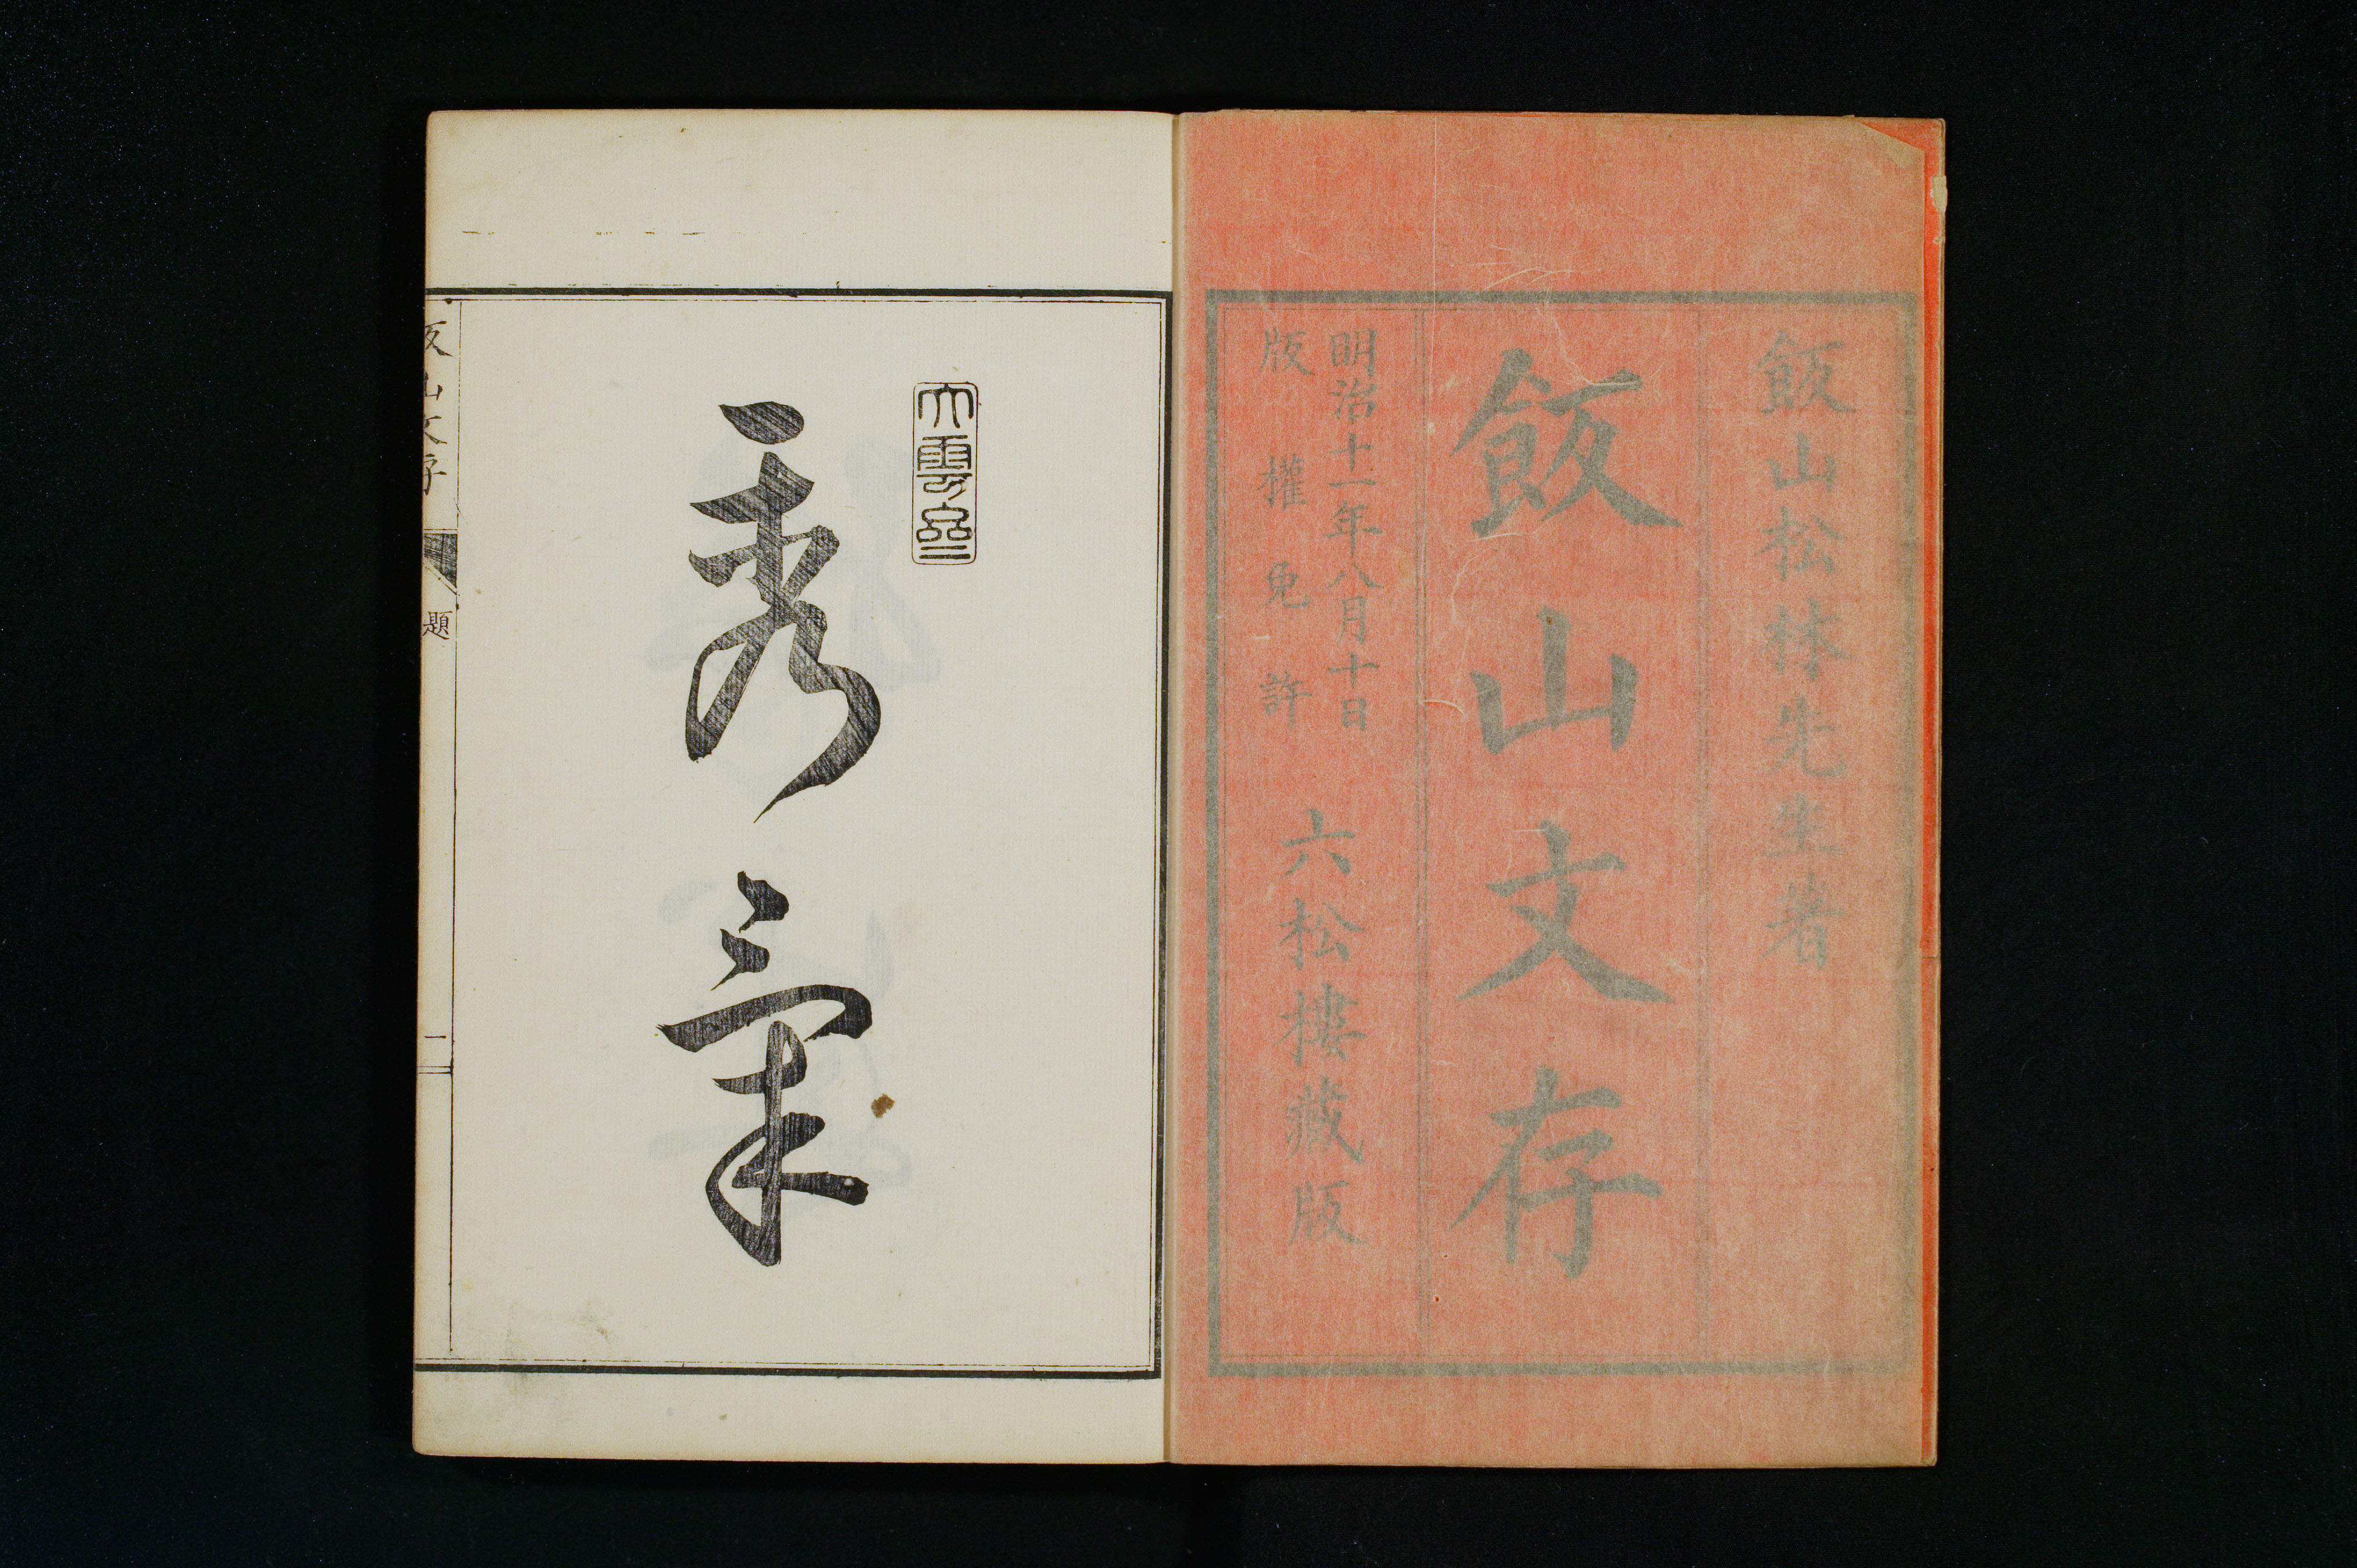 飯山松林先生著
飯山文存
明治十一年八月十日
版權免許
六松樓藏版
秀
氣
飯山文存
題
一